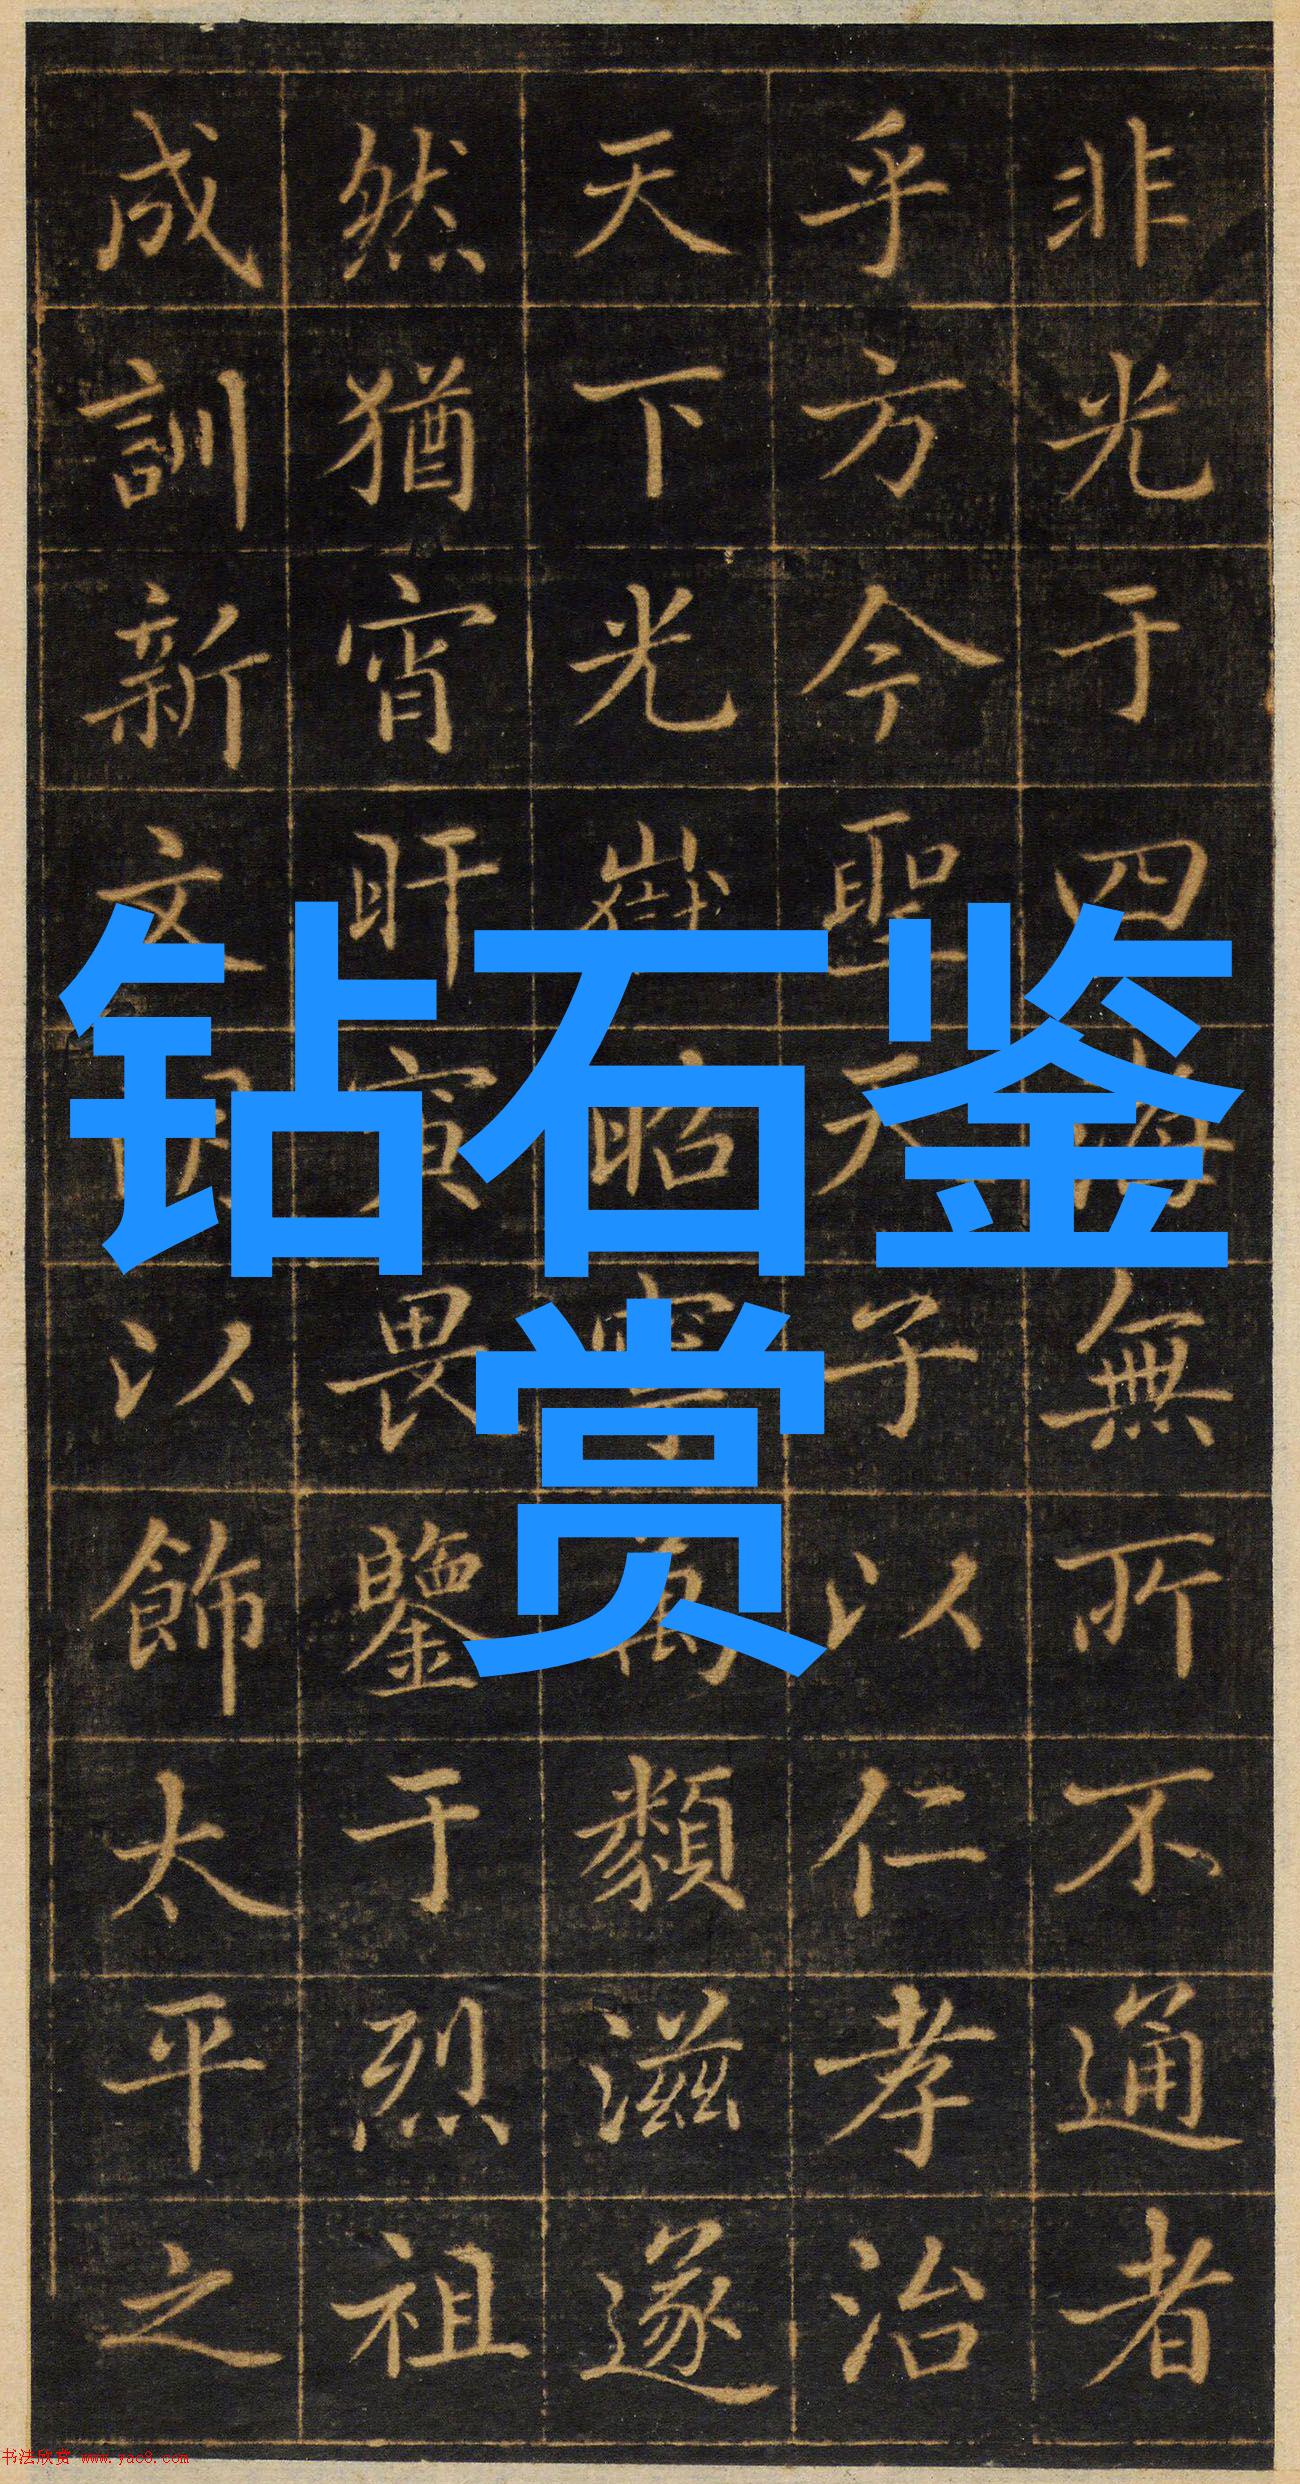 非光于四海無所不通者
乎方今聖天子以仁孝治
天下光嶽昭寧萬類滋遂
然猶宵旰寅畏鑒于烈祖
成訓新文以飾太平之
钻石鉴
赏
书法欣赏 www.yac8.com